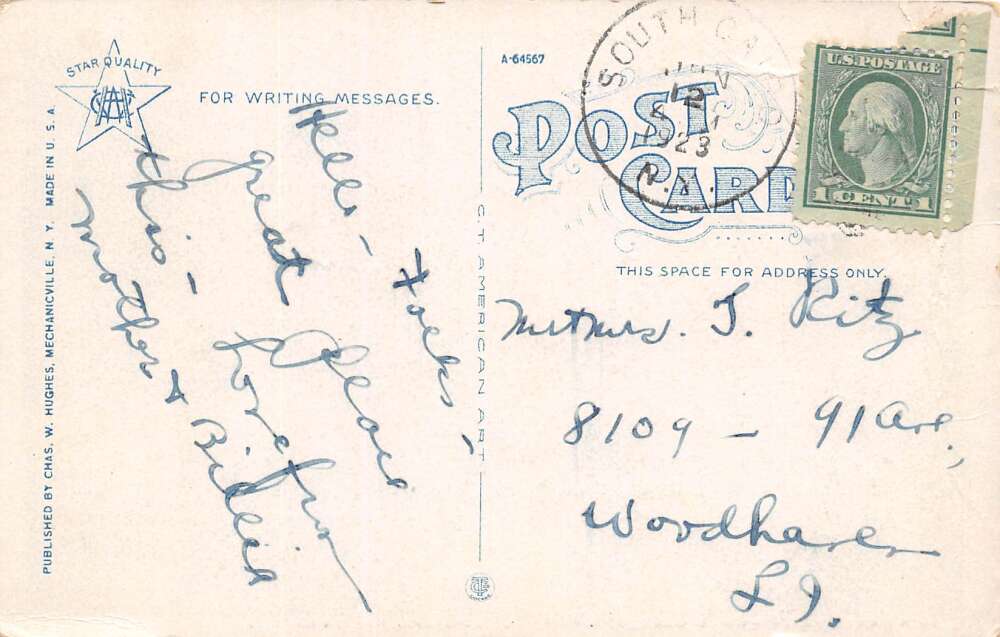 STAR QUALITY
FOR WRITING MESSAGES.
PUBLISHED BY CHAS. W. HUGHES, MECHANICVILLE, N. Y. MADE IN U. S. A.
Hello - Folks -
great place
this - Love from
mother & Billie
C. T. AMERICAN ART
A-64567
POST CARD
THIS SPACE FOR ADDRESS ONLY.
SOUTH
12
1923
N.Y.
U.S. POSTAGE
1 CENT 1
Mr + Mrs. J. Ritz
8109 - 91 Ave.,
Woodhaven
L I.